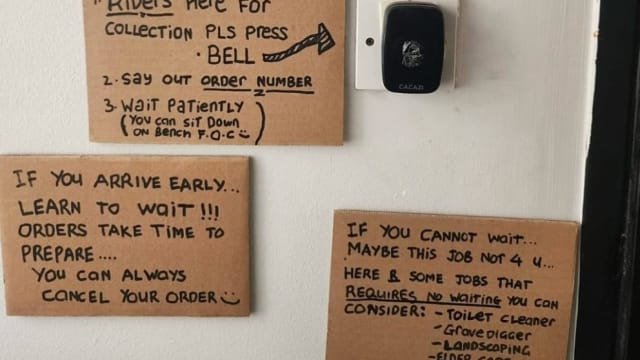 " RIDERS HERE FOR
COLLECTION PLS PRESS
· BELL
2. SAY OUT ORDER NUMBER
3. WAIT PATIENTLY
(YOU CAN SIT DOWN
ON BENCH F.O.C)
CACAZI
IF YOU ARRIVE EARLY...
LEARN TO WAIT !!!
ORDERS TAKE TIME TO
PREPARE....
YOU CAN ALWAYS
CANCEL YOUR ORDER
IF YOU CANNOT WAIT...
MAYBE THIS JOB NOT 4 U...
HERE R SOME JOBS THAT
REQUIRES NO WAITING YOU CAN
CONSIDER: - TOILET CLEANER
- GRAVE DIGGER
- LANDSCAPING